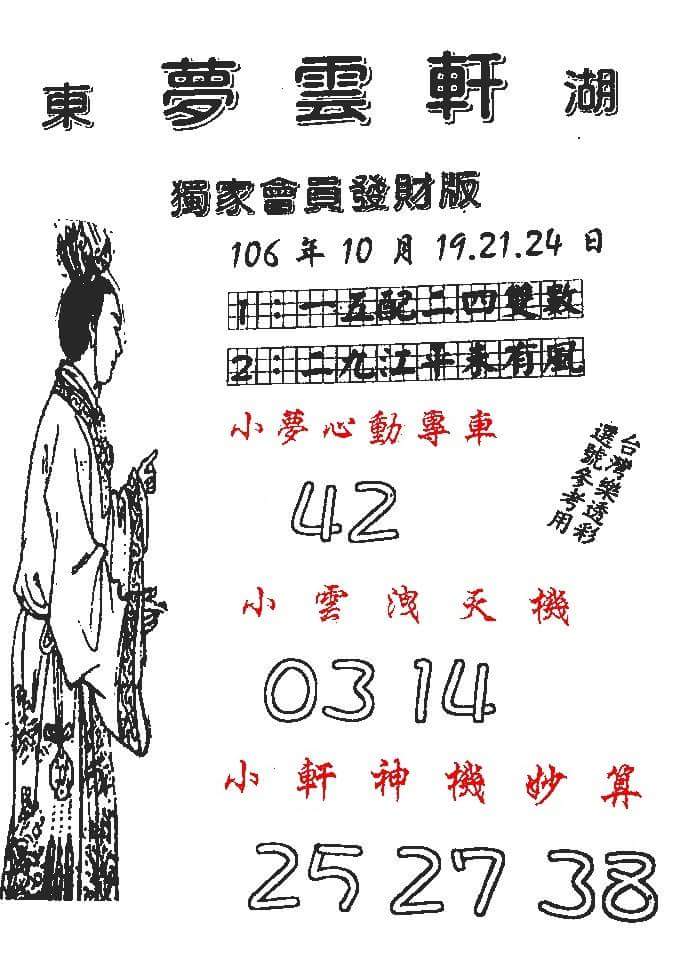 東 夢 雲 軒 湖
獨家會員發財版
106 年 10 月 19.21.24 日
1：一五配二四雙數
2：二九江平素有風
小夢心動專車
42
台灣樂透彩
選號參考用
小雲洩天機
03 14
小軒神機妙算
25 27 38